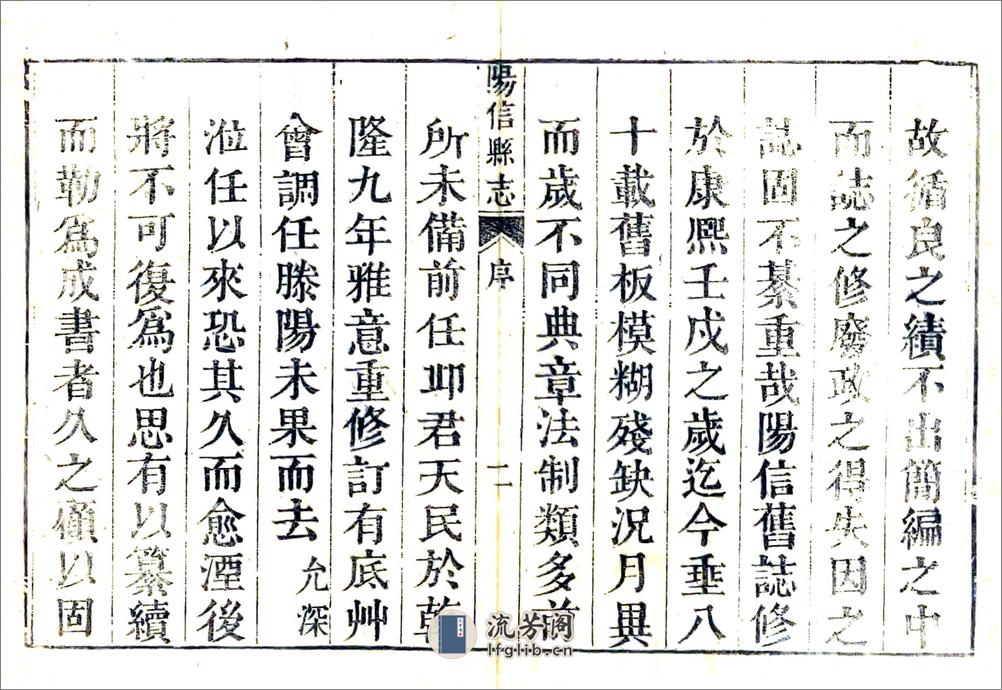 故循良之績不出簡編之中
而誌之修廢政之得失因之
誌固不綦重哉陽信舊誌修
於康熙壬戍之歲迄今垂八
十載舊板模糊殘缺況月異
而歲不同典章法制類多前
陽信縣志 序 二
所未備前任邱君天民於乾
隆九年雅意重修訂有底艸
會調任滕陽未果而去允深
涖任以來恐其久而愈湮後
將不可復爲也思有以纂續
而勒爲成書者久之顧以固
流芳阁
lfglib.cn